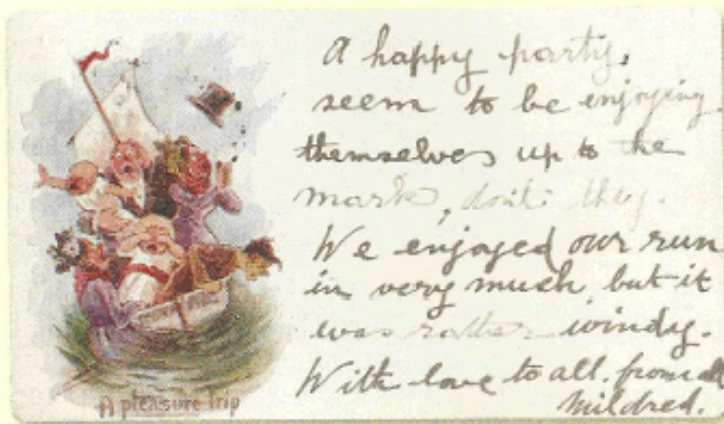 A happy party,
seem to be enjoying
themselves up to the
mark, don't they.
We enjoyed our run
in very much but it
was rather windy.
With love to all. from all
Mildred.
A pleasure Trip